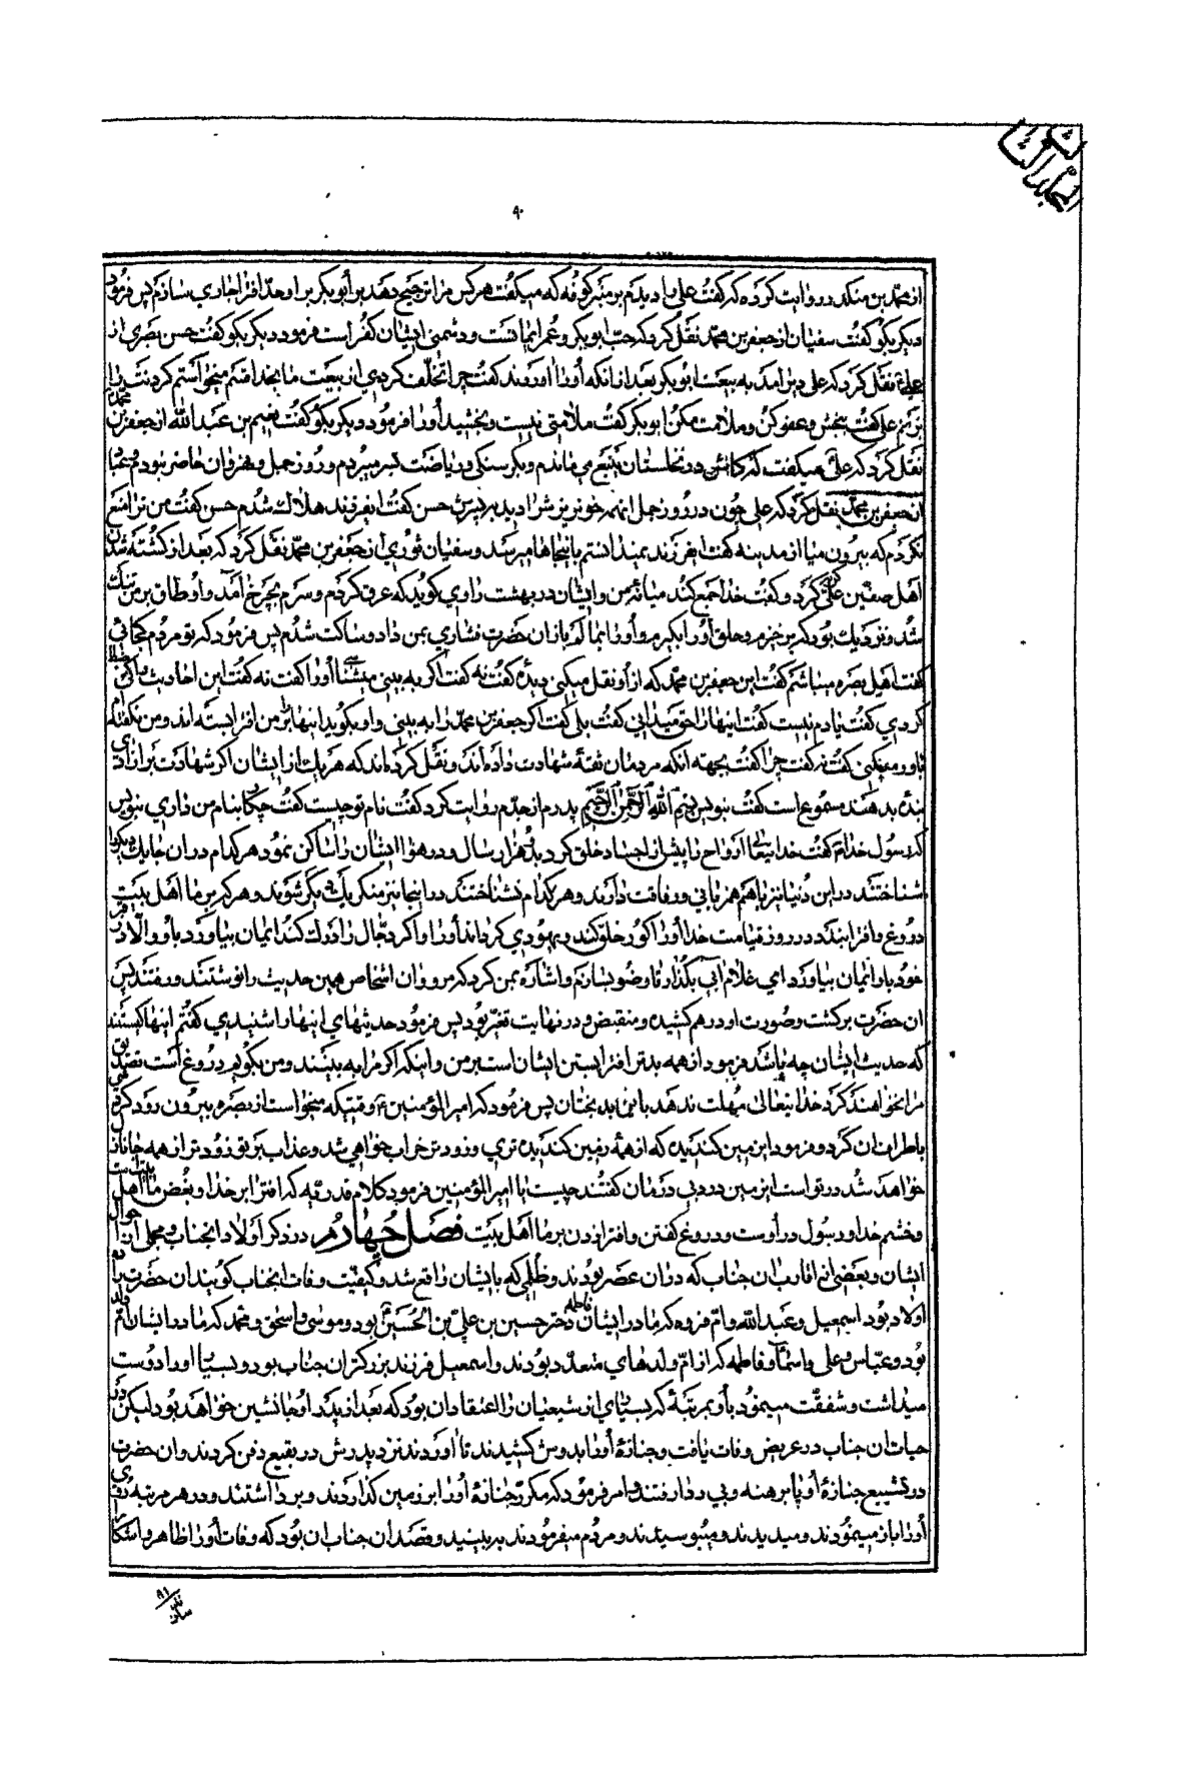 المجلد الثالث
۹۰
از محمد بن منکدر روایت کرده که گفت علی را دیدم بر منبر کوفه که میگفت هر کس مرا ترجیح دهد بر أبو بکر بر او حد افترا جاری بسازم پس فرمود
دیگر بگو گفت سفیان از جعفر بن محمد نقل کرد که حب ابو بکر و عمر ایمانست و دشمنی ایشان کفر است فرمود دیگر بگو گفت حسن بصری از
علی نقل کرد که علی دیر آمد به بیعت ابو بکر بعد از انکه أو را آوردند گفت چرا تخلف کردی از بیعت ما بخدا قسم میخواستم گردنت را
بزنم علی گفت ببخش و عفو کن و ملامت مکن ابو بکر گفت ملامتی نیست و بخشید أو را فرمود دیگر بگو گفت نعیم بن عبد الله از جعفر بن محمد
نقل کرد که علی میگفت که کاش در نخلستان ینبع می ماندم و بگرسنگی و ریاضت بسر میبردم و روز جمل و نهروان حاضر نبودم و
از جعفر بن محمد نقل کرد که علی چون در روز جمل انهمه خونریزش را دید بپسرش حسن گفت ایفرزند هلاک شدم حسن گفت من ترا منع
نکردم که بیرون میا از مدینه گفت ایفرزند نمیدانستم باینجاها میرسد و سفیان ثوری از جعفر بن محمد نقل کرد که بعد از کشته شدن
اهل صفین علی گریه کرد و گفت خدا جمع کند میانه من و ایشان در بهشت راوی گوید که عرق کردم و سرم بچرخ آمد و اوطاق بر من تنک
شد و نزدیک بود که برخیزم و حلق أو را بگیرم و أو را بمالم باز ان حضرت اشاری بمن داد و ساکت شدم پس فرمود که تو مردم کجائی
گفت اهل بصره میباشم گفت این جعفر بن محمد که از أو نقل میکنی دیده گفت نه گفت اگر به بینی میشناسی أو را گفت نه گفت این احادیث را کی
کردی گفت یادم نیست گفت اینها را حق میدانی گفت بلی گفت اگر جعفر بن محمد را به بینی و او بگوید اینها را بر من افترا بسته اند و من نگفته ام
باور میکنی گفت نه گفت چرا گفت بجهته انکه مردمان ثقة شهادت داده اند و نقل کرده اند که هر یک از ایشان اگر شهادت بر ازادی
بنده بدهند مسموع است گفت بنویس بسم الله الرحمن الرحیم پدرم از جدم روایت کرد گفت نام تو چیست گفت چکار بنام من داری بنویس
که رسول خدا گفت خدایتعالی أرواح را پیش از اجساد خلق کرد بدو هزار سال و در هوا ایشان را ساکن نمود هر کدام در ان جا یک دیگر را
شناختند در این دنیا نیز با هم مهربانی و رفاقت دارند و هر کدام نشناختند در اینجا نیز منکر یک دیگر شوند و هر که بر ما اهل بیت
دروغ و افترا بندد در روز قیامت خدا أو را کور خلق کند و یهودی گرداند أو را و اگر دجال را درک کند ایمان بیاورد باو و الا در قبر
خود باو ایمان بیاورد ای غلام آبی بگذار تا وضو بسازم و اشاره بمن کرد که مرو و ان اشخاص همین حدیث را نوشتند و رفتند پس
ان حضرت برگشت و صورت او درهم کشیده و منقبض و در نهایت تغیر بود پس فرمود حدیثهای اینها را شنیدی گفتم اینها کیستند
که حدیث ایشان چه باشد فرمود از همه بدتر افترا بستن ایشان است بر من و اینکه اگر مرا به بینند و من بگویم دروغ است تصدیق
مرا نخواهند کرد خدایتعالی مهلت ندهد باین بدبختان پس فرمود که امیر المؤمنین وقتیکه میخواست از بصره بیرون رود نگاهی
باطراف ان کرد و فرمود این زمین گندیده که از همه زمین گندیده تری و زودتر خراب خواهی شد و عذاب بر تو زودتر از همه جا نازل
خواهد شد در تو است این زمین درد بی درمان گفتند چیست یا امیر المؤمنین فرمود کلام قدریه که افترا بر خدا و بغض ما اهل بیت است
و خشم خدا و رسول در أوست و دروغ گفتن و افترا زدن بر ما اهل بیت فصل چهارم در ذکر أولاد انجناب و مجملی از احوال
ایشان و بعضی از اقارب ان جناب که در ان عصر بودند و ظلمی که بایشان واقع شد و کیفیت وفات انجناب گویند ان حضرت را ده
اولاد بود اسمعیل و عبد الله و ام فروه که مادر ایشان فاطمه دختر حسین بن علی بن الحسین بود و موسی و اسحق و محمد که مادر ایشان ام ولد
بود و عباس و علی و اسماء و فاطمه که از ام ولدهای متعدد بودند و اسمعیل فرزند بزرگتر ان جناب بود و بسیار او را دوست
میداشت و شفقت مینمود باو بمرتبه که بسیاری از شیعیان را اعتقاد ان بود که بعد از پدر او جانشین خواهد بود لیکن در
حیات ان جناب در عریض وفات یافت و جنازه أو را بدوش کشیدند تا آوردند نزد پدرش در بقیع دفن کردند و ان حضرت
در تشییع جنازه أو پا برهنه و بی ردا رفتند و امر فرمود که مکرر جنازه أو را بر زمین گذاردند و برداشتند و در هر مرتبه روی
أو را باز مینمودند و میدیدند و میبوسیدند و مردم میفرمودند به بینید و قصد ان جناب ان بود که وفات أو را ظاهر و آشکارا